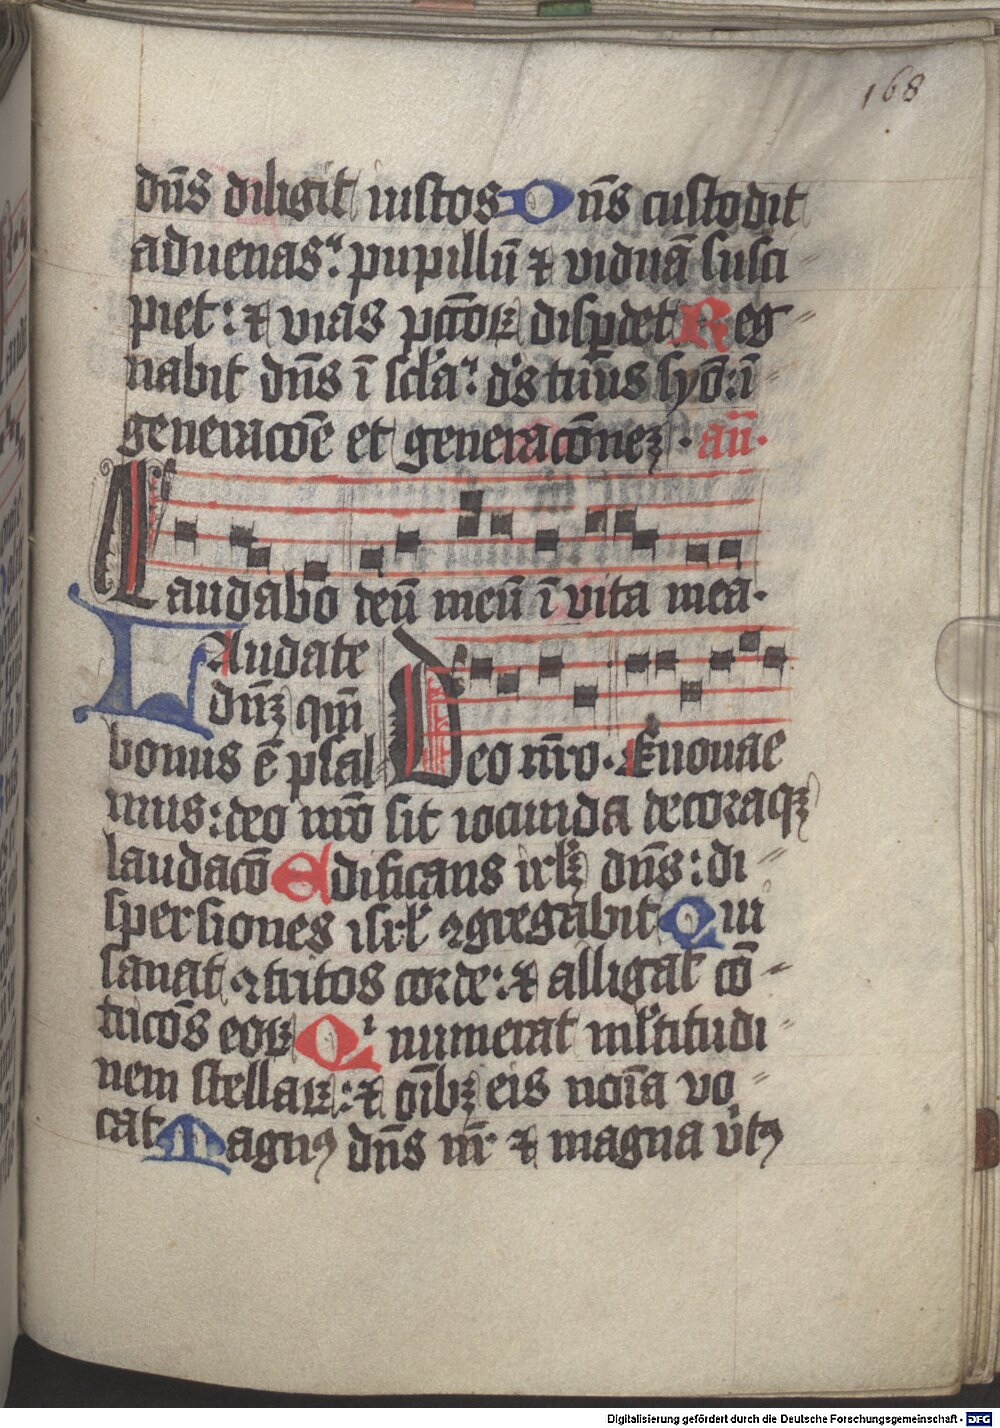 168
dn̄s diligit iustos Dn̄s custodit
aduenas: pupillū ⁊ viduā susci
piet: ⁊ vias pctōꝝ disꝑdet Reg
nabit dn̄s ī scl̄a: dˢ tuus syō: ī
generacōe et generacōnez. an̄.
Laudabo deū meū ī vita mea.
Laudate
dn̄ꝫ qm̄
bonus ē psal
Deo nr̄o. Euouae
mus: deo nr̄o sit iocunda decoraqꝫ
laudacō Edificans irl̄ꝫ dn̄s: di
spersiones isrl̄ ꝯgregabit Qui
sanat ꝯtritos corde: ⁊ alligat cō
tricōs eoꝝ Qⁱ numerat ml̄titudi
nem stellaꝝ: ⁊ oībꝫ eis noīa vo
cat Magnꝰ dn̄s nr̄ ⁊ magna v̄tꝰ
Digitalisierung gefördert durch die Deutsche Forschungsgemeinschaft - DFG